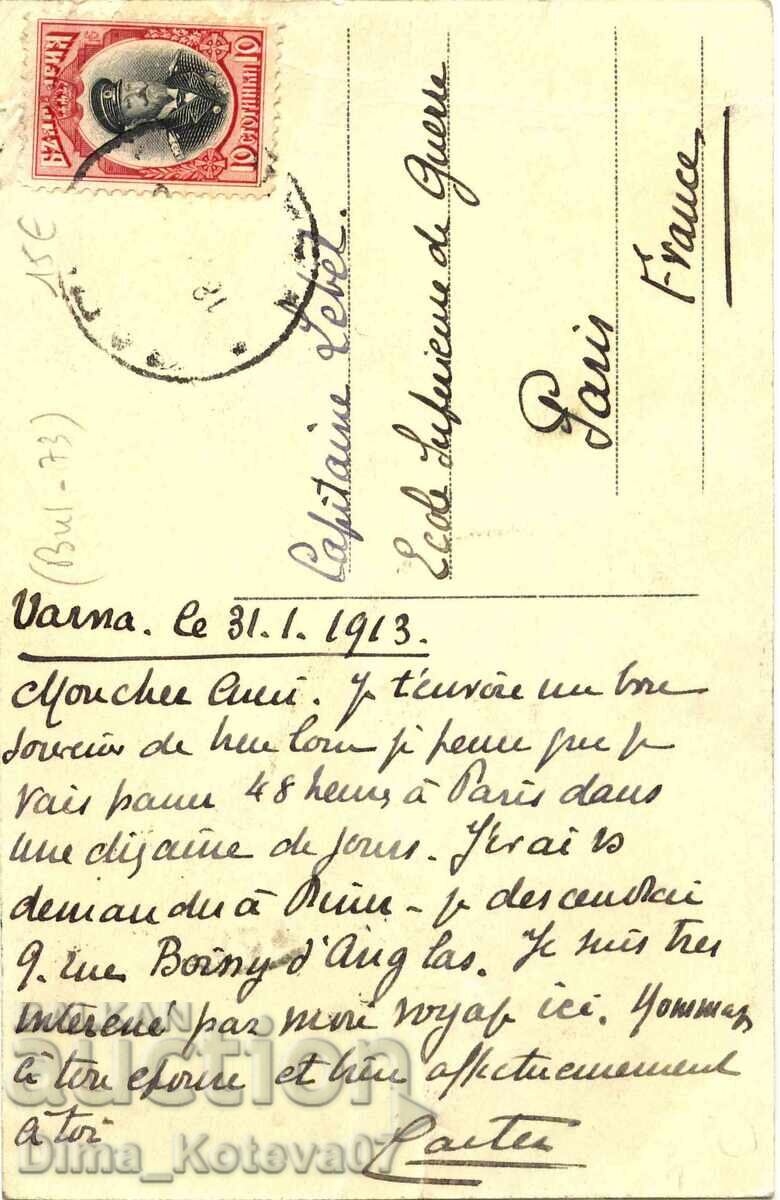 БЪЛГАРИЯ
10 СТОТИНКИ 10
15€
(Bul-73)
18
Capitaine Lebel.
Ecole Superieure de Guerre
Paris
France
Varna. le 31.1.1913.
Mon cher Ami. Je t'envoie un bon
souvenir de bien loin je pense que je
vais passer 48 heures à Paris dans
une dizaine de jours. J'irai vs
demander à diner – je descendrai
9. rue Boissy d'Anglas. Je suis tres
intéressé par mon voyage ici. Hommages
à ton epouse et bien affectueusement
à toi
BALKAN
auction
Dima_Koteva07